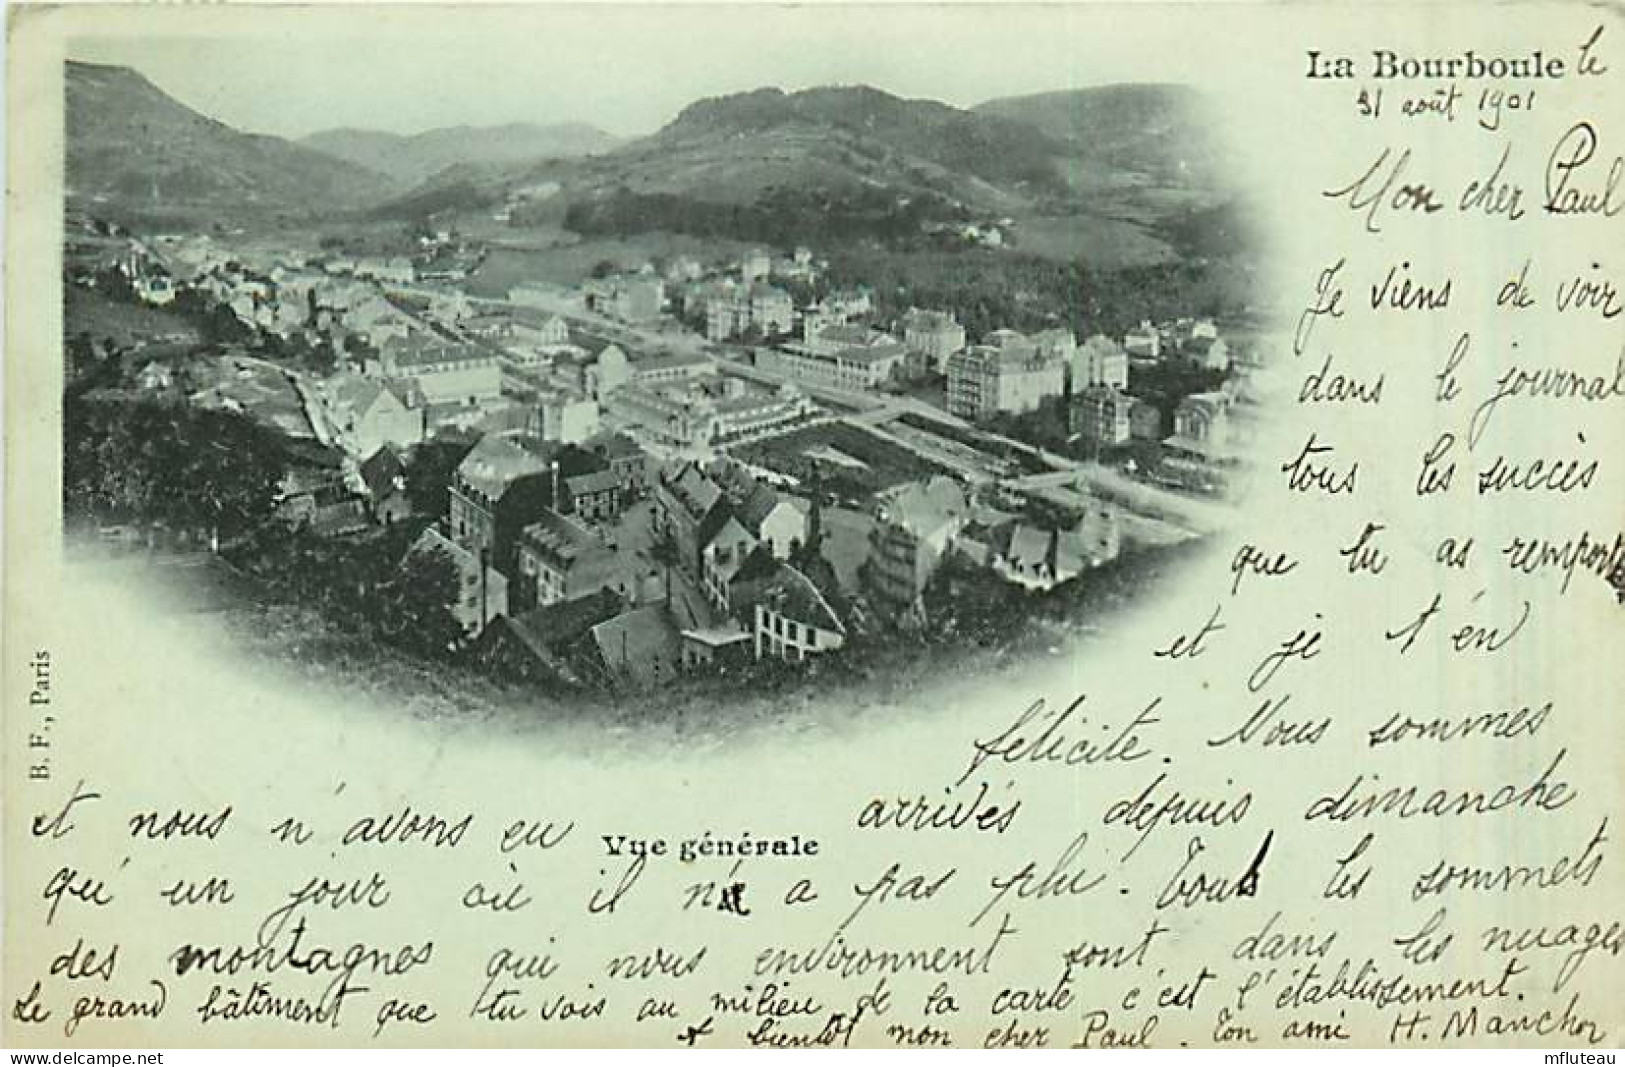 La Bourboule le
31 août 1901
Mon cher Paul
Je viens de voir
dans le journal
tous les succès
que tu as remporté
et je t'en
félicite. Nous sommes
arrivés depuis dimanche
et nous n'avons eu
Vue générale
qu'un jour où il n'a pas plu. Tous les sommets
des montagnes qui nous environnent sont dans les nuages
Le grand bâtiment que tu vois au milieu de la carte c'est l'établissement.
A bientôt mon cher Paul. Ton ami H. Manchon
B. F., Paris
delcampe.net
mfluteau